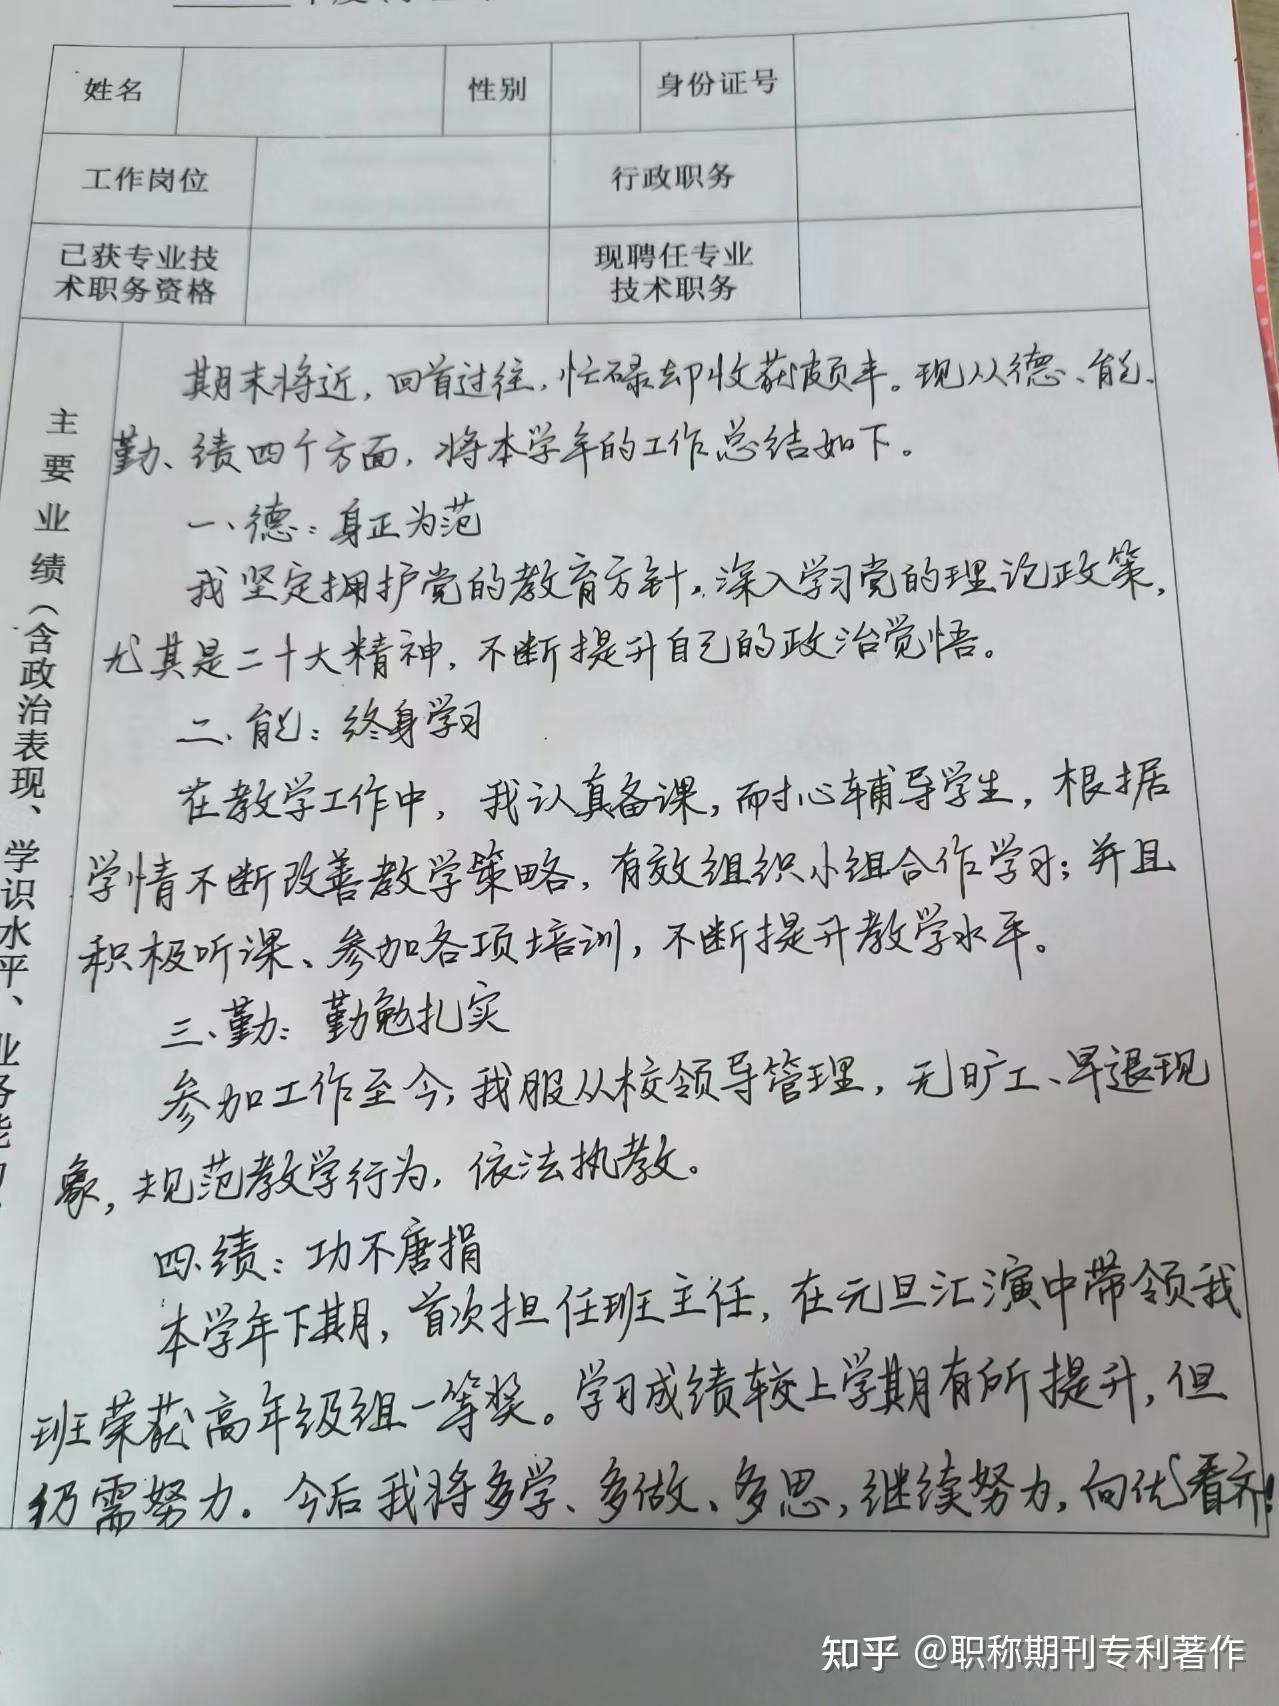 姓名 性别 身份证号
工作岗位 行政职务
已获专业技 现聘任专业
术职务资格 技术职务
主要业绩（含政治表现、学识水平、业务能
期末将近，回首过往，忙碌却收获颇丰。现从德、能、
勤、绩四个方面，将本学年的工作总结如下。
一、德：身正为范
我坚定拥护党的教育方针，深入学习党的理论政策，
尤其是二十大精神，不断提升自己的政治觉悟。
二、能：终身学习
在教学工作中，我认真备课，耐心辅导学生，根据
学情不断改善教学策略，有效组织小组合作学习；并且
积极听课、参加各项培训，不断提升教学水平。
三、勤：勤勉扎实
参加工作至今，我服从校领导管理，无旷工、早退现
象，规范教学行为，依法执教。
四、绩：功不唐捐
本学年下期，首次担任班主任，在元旦汇演中带领我
班荣获高年级组一等奖。学习成绩较上学期有所提升，但
仍需努力。今后我将多学、多做、多思，继续努力，向优看齐！
知乎 @职称期刊专利著作